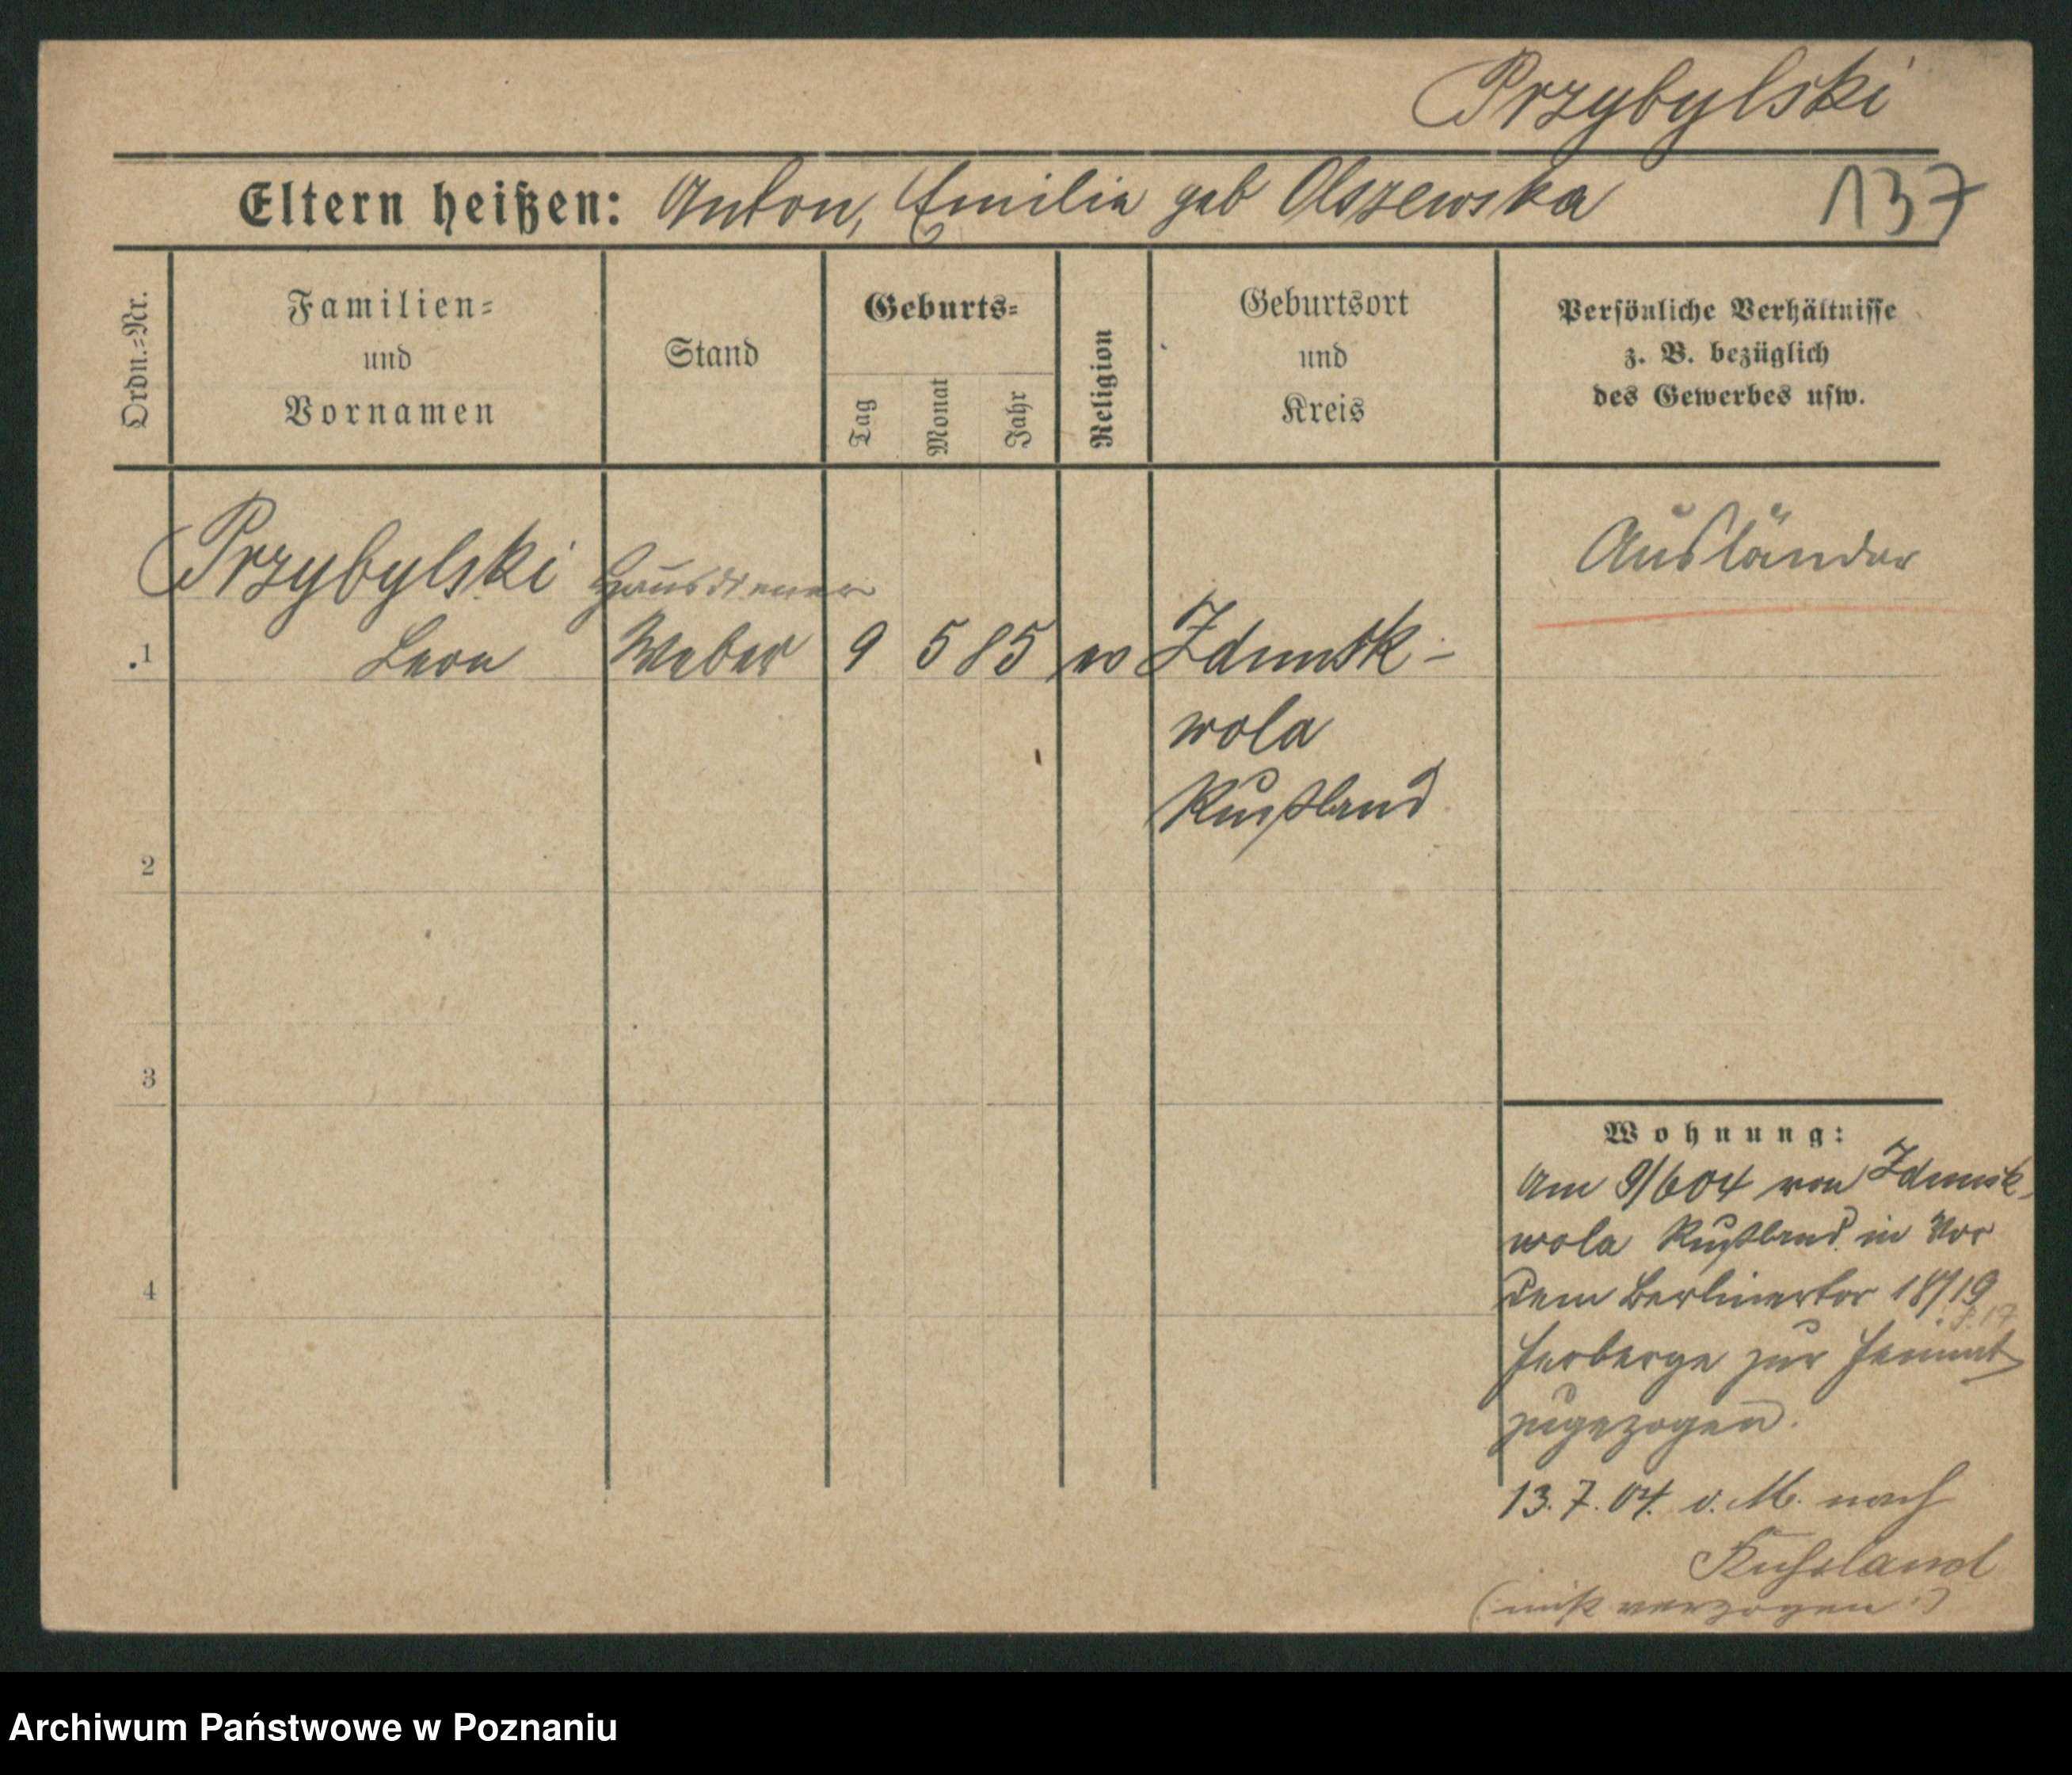 Przybylski
Eltern heißen: Anton, Emilia geb Olszewska
137
Ordn.-Nr.
Familien-
und
Vornamen
Stand
Geburts-
Tag
Monat
Jahr
Religion
Geburtsort
und
Kreis
Persönliche Verhältnisse
z. B. bezüglich
des Gewerbes usw.
Ausländer
Przybylski Hausdiener
1 Leon Weber 9 5 85 Zdunsk-
wola
Rußland
2
3
4
Wohnung:
Am 9/6 04 von Zdunsk-
wola Rußland in Vor
dem Berlinertor 18/19
Herberge zur Heimat
zugezogen.
13.7.04. v. M. nach
Russland
verzogen
Archiwum Państwowe w Poznaniu